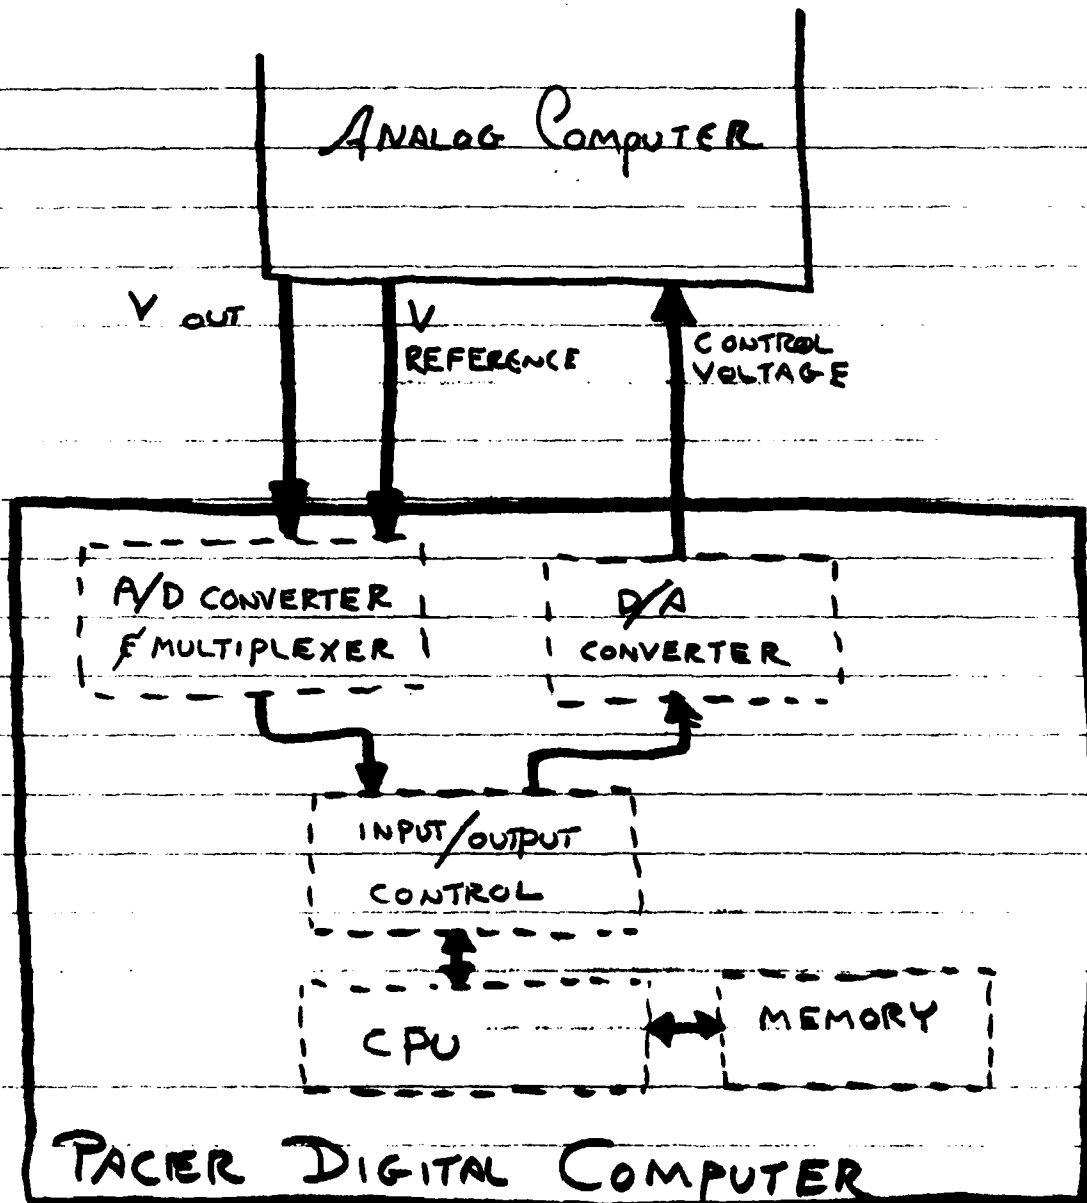 ANALOG COMPUTER
V OUT
V
REFERENCE
CONTROL
VOLTAGE
A/D CONVERTER
& MULTIPLEXER
D/A
CONVERTER
INPUT/OUTPUT
CONTROL
CPU
MEMORY
PACER DIGITAL COMPUTER